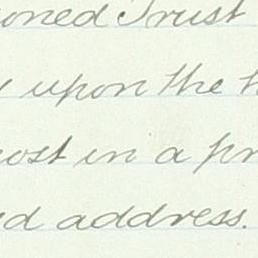 ioned Trust
y upon the h
ost in a pr
ed address.